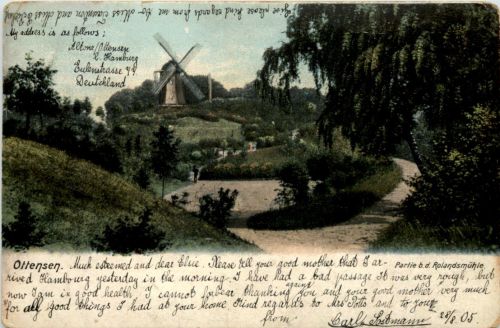 Give please kind regards from me to Miss Craudon and Miss Field
My address is as follows;
Altona/Ottensen
b. Hamburg
Eulenstrasse 77
Deutschland
Ottensen.
Partie b. d. Rolandsmühle.
Much esteemed and dear Elsie. Please tell your good mother that I ar-
rived Hamburg yesterday in the morning. I have had a bad passage it was very rough, but
now I am in good health. I cannot forbear thanking you again and your good mother very much
for all good things I had at your home. Kind regards to Mrs Potts and to you
from Carl Postmann 24/6 05